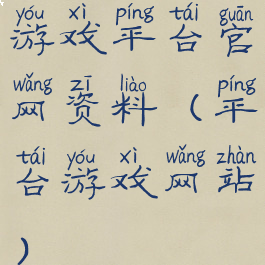 yóu xì píng tái guān
游戏平台官
wǎng zī liào píng
网资料（平
tái yóu xì wǎng zhàn
台游戏网站
）